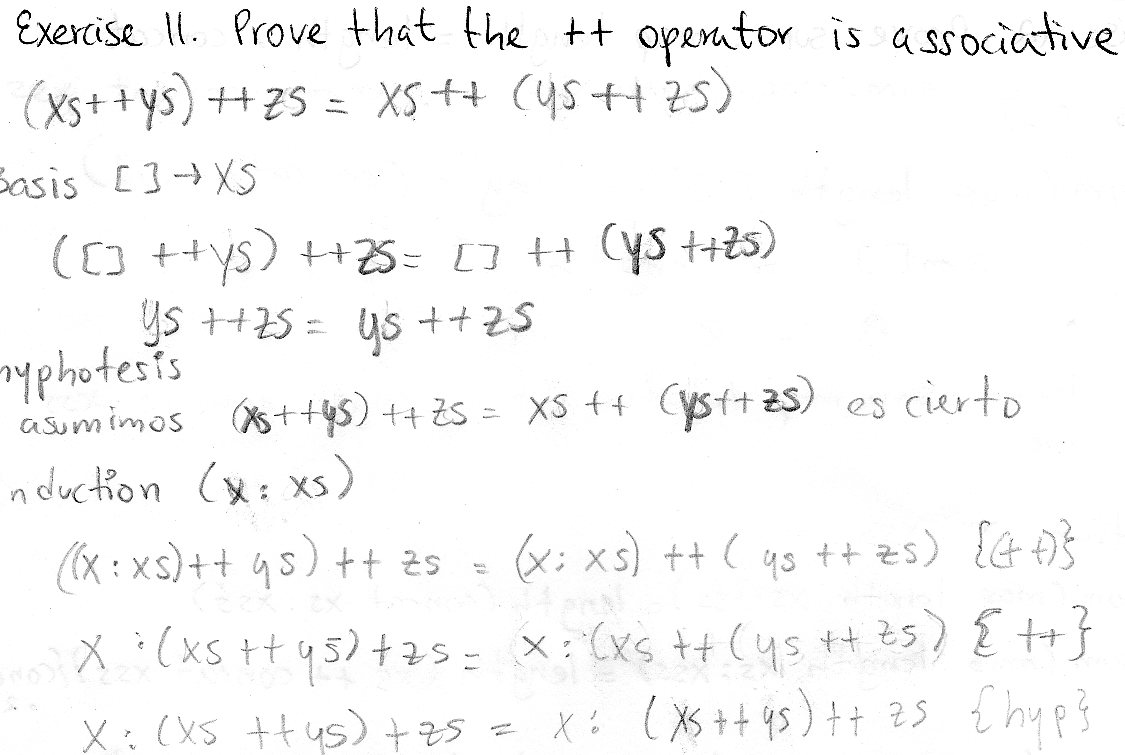 Exercise 11. Prove that the ++ operator is associative
(xs++ys) ++zs = xs ++ (ys ++ zs)
Basis []→xs
([] ++ys) ++zs = [] ++ (ys ++zs)
ys ++zs = ys ++zs
hyphotesis
asumimos (xs++ys) ++ zs = xs ++ (ys++ zs) es cierto
nduction (x: xs)
((x:xs)++ ys) ++ zs = (x: xs) ++ ( ys ++ zs) {(++)}
x :(xs ++ ys)+zs = x:(xs ++ (ys ++ zs) {++}
x: (xs ++ys) +zs = x: (xs ++ys) ++ zs {hyp}